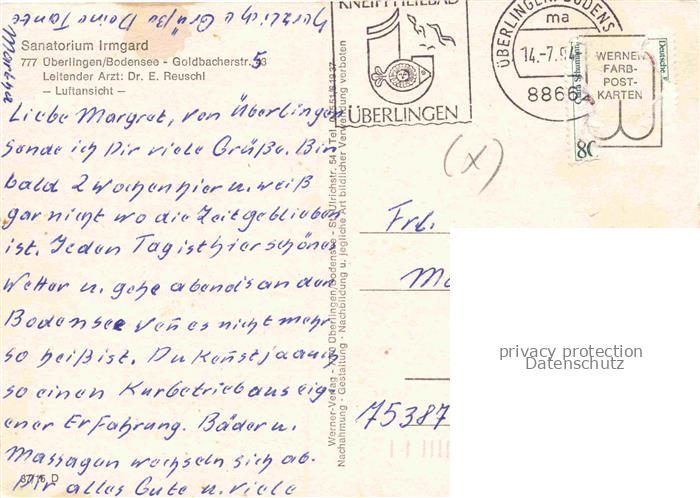 Sanatorium Irmgard
777 Überlingen/Bodensee - Goldbacherstr. 53
Leitender Arzt: Dr. E. Reuschl
— Luftansicht —
Liebe Margret, von Überlingen
sende ich Dir viele Grüße. Bin
bald 2 Wochen hier u. weiß
gar nicht wo die Zeit geblieben
ist. Jeden Tag ist hier schönes
Wetter u. gehe abends an den
Bodensee wen es nicht mehr
so heiß ist. Du kenst ja auch
so einen Kurbetrieb aus eig
ener Erfahrung. Bäder u.
Massagen wechseln sich ab.
Dir alles Gute u. viele
herzliche Grüße Deine Tante
Martha
87/15 D
Werner-Verlag - 7770 Überlingen/Bodensee - St. Ulrichstr. 54 - Tel. 07551/61937
Nachahmung - Gestaltung - Nachbildung u. jegliche Art bildlicher Verwendung verboten
KNEIPPHEILBAD
ÜBERLINGEN
ÜBERLINGEN, BODENS
ma
14.-7.94
8866
Clara Schumann
80
Deutsche
WERNER
FARB-
POST-
KARTEN
(x)
Frl.
75387
privacy protection
Datenschutz